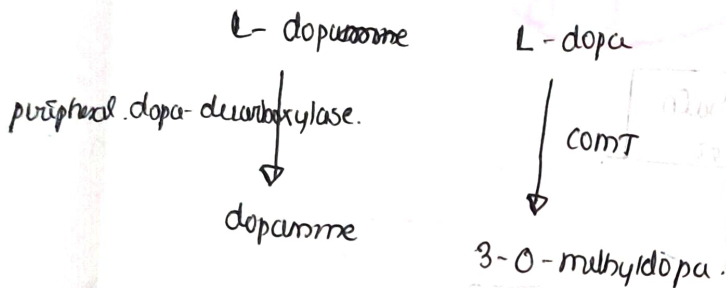 L- dopamine
L-dopa
peripheral dopa-decarboxylase.
COMT
dopamine
3-O-methyldopa.